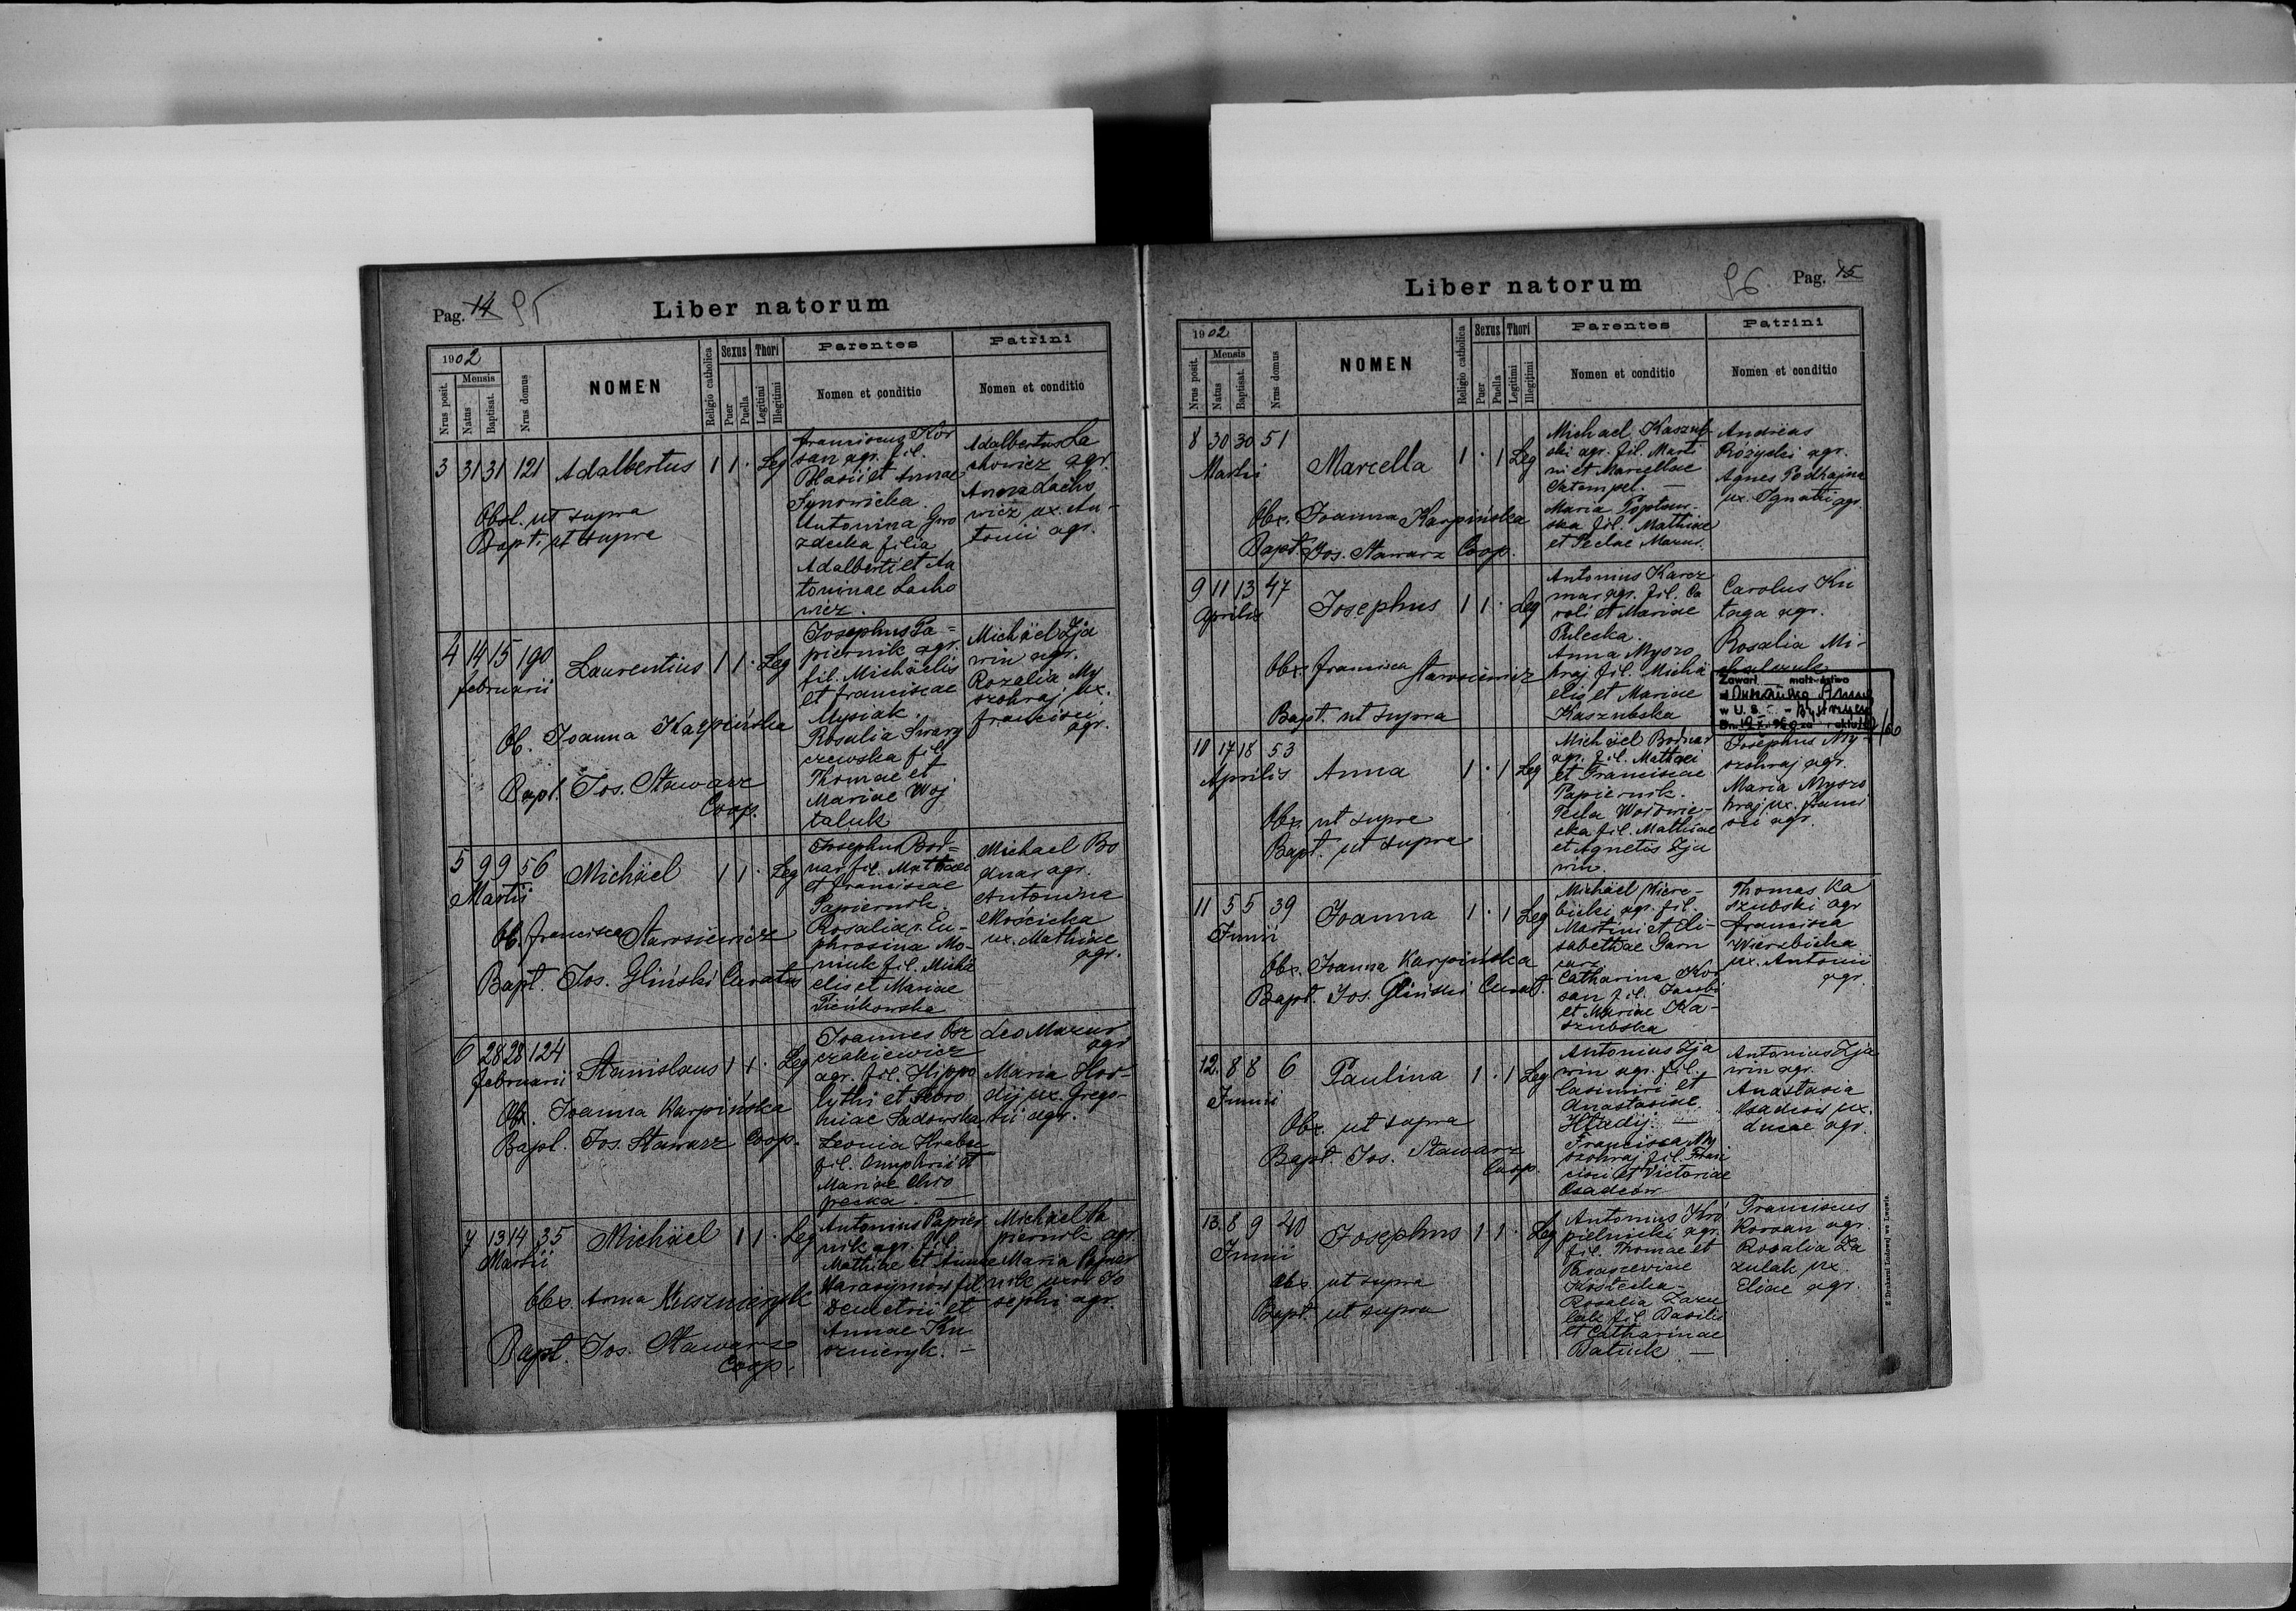 Pag. 14 95
Liber natorum
1902
Nrus posit.
Mensis
Natus
Baptisat.
Nrus domus
NOMEN
Religio catholica
Sexus
Puer
Puella
Thori
Legitimi
Illegitimi
Parentes
Nomen et conditio
Patrini
Nomen et conditio
3 31 31 121 Adalbertus 1 1 . Leg
Obst. ut supra
Bapt. ut supra
Franciscus Kor
san agr. fil.
Blasii et Annae
Synowicka.
Antonina Gwo
zdecka filia
Adalberti et An
toninae Lacho
wicz.
Adalbertus La
chowicz agr.
Anna Lacho
wicz ux. An-
tonii agr.
4 14 15 190 Laurentius 1 1 . Leg
Februarii
Ob. Joanna Karpińska
Bapt. Jos. Stawarz
Coop.
Josephus Pa=
piernik agr.
fil. Michäelis
et Franciscae
Mysiak.
Rosalia Swary
czewska fil.
Thomae et
Mariae Woj
taluk
Michäel Zja
win agr.
Rozalia My
szohraj ux.
Francisci
agr.
5 9 9 56 Michäel 1 1 . Leg
Martii
Ob. Francisca Starosiewicz
Bapt. Jos. Gliński Curatus
Josephus Bod=
nar fil. Mathaei
et Franciscae
Papiernik.
Rosalia v. Eu-
phrosina Mo-
niuk fil. Michä
elis et Mariae
Pieńkowska
Michael Bo
dnar agr.
Antonina
Mościcka
ux. Mathiae
agr.
6 28 28 124 Stanislaus 1 1 . Leg
Februarii
Obx. Joanna Karpińska
Bapt. Jos. Stawarz Coop.
Joannes
czakiewicz
agr. fil. Hippo
lythi et
niae Sadowska
Leonia Hrabec
fil. Onuphrii et
Mariae Chro
pecka
Leo Mazur
agr.
Maria Hor-
dij ux. Grego-
rii agr.
7 13 14 35 Michäel 1 1 . Leg
Martii
Obx. Anna Kuszmeryk
Bapt. Jos. Stawarz
Coop.
Antonius Papier
nik agr. fil.
Mathiae et Annae
Harasymów fil.
Demetrii et
Annae Ku
szmeryk.
Michäel Pa
piernik agr.
Maria Papier
nik uxor Jo
sephi agr.
Liber natorum
96. Pag. 15
1902
Nrus posit.
Mensis
Natus
Baptisat.
Nrus domus
NOMEN
Religio catholica
Sexus
Puer
Puella
Thori
Legitimi
Illegitimi
Parentes
Nomen et conditio
Patrini
Nomen et conditio
8 30 30 51 Marcella 1 . 1 Leg
Martii
Obx. Joanna Karpińska
Bapt. Jos. Stawarz Coop.
Michael Kaszub-
ski agr. fil. Marti
ni et Marcellae
Sztompel.
Maria
ska fil. Mathiae
et Teclae Mazur.
Andreas
Różycki agr.
Agnes Podhajna
ux. Ignatii agr.
9 11 13 47 Josephus 1 1 . Leg
Aprilis
Obx. Francisca Starosiewicz
Bapt. ut supra
Antonius Karcz
mar agr. fil. Ca
roli et Mariae
Pulecka.
Anna Myszo
hraj fil. Michä
elis et Mariae
Kaszubska
Carolus Ku
taga agr.
Rosalia Mi-
Zawarł małżeństwo
w U. S. C.
10 17 18 53 Anna 1 . 1 Leg
Aprilis
Obx. ut supra
Bapt. ut supra
Michäel Bodnar
agr. fil. Mathaei
et Franciscae
Papiernik.
Tecla Wojowie-
cka fil. Mathiae
et Agnetis Zja
win.
Josephus My-
szohraj agr.
Maria Myszo
hraj ux. Franci
sci agr.
11 5 5 39 Joanna 1 . 1 Leg
Junii
Obx. Joanna Karpińska
Bapt. Jos. Gliński Curat.
Michäel Wierz-
bicki agr. fil.
Martini et Eli-
sabethae Garn
carz
Catharina Kor
san fil. Jacobi
et Mariae Ka-
szubska
Thomas Ka
szubski agr.
Francisca
Wierzbicka
ux. Antonii
agr.
12. 8 8 6 Paulina 1 . 1 Leg
Junii
Obx. ut supra
Bapt. Jos. Stawarz
Coop.
Antonius Zja
win agr. fil.
Casimiri et
Anastasiae
Hładij.
Francisca My
szohraj fil. Franci
sci et Victoriae
Osadców
Antonius Zja
win agr.
Anastasia
Osadców ux.
Lucae agr.
13. 8 9 40 Josephus 1 1 . Leg
Junii
Obx. ut supra
Bapt. ut supra
Antonius Kro
pielnicki agr.
fil. Thomae et
Parascevinae
Kostecka-
Rosalia Zazu
lak fil. Basilii
et Catharinae
Batiuk
Franciscus
Korsan agr.
Rosalia Za
zulak ux.
Eliae agr.
Z Drukarni Ludowej we Lwowie.